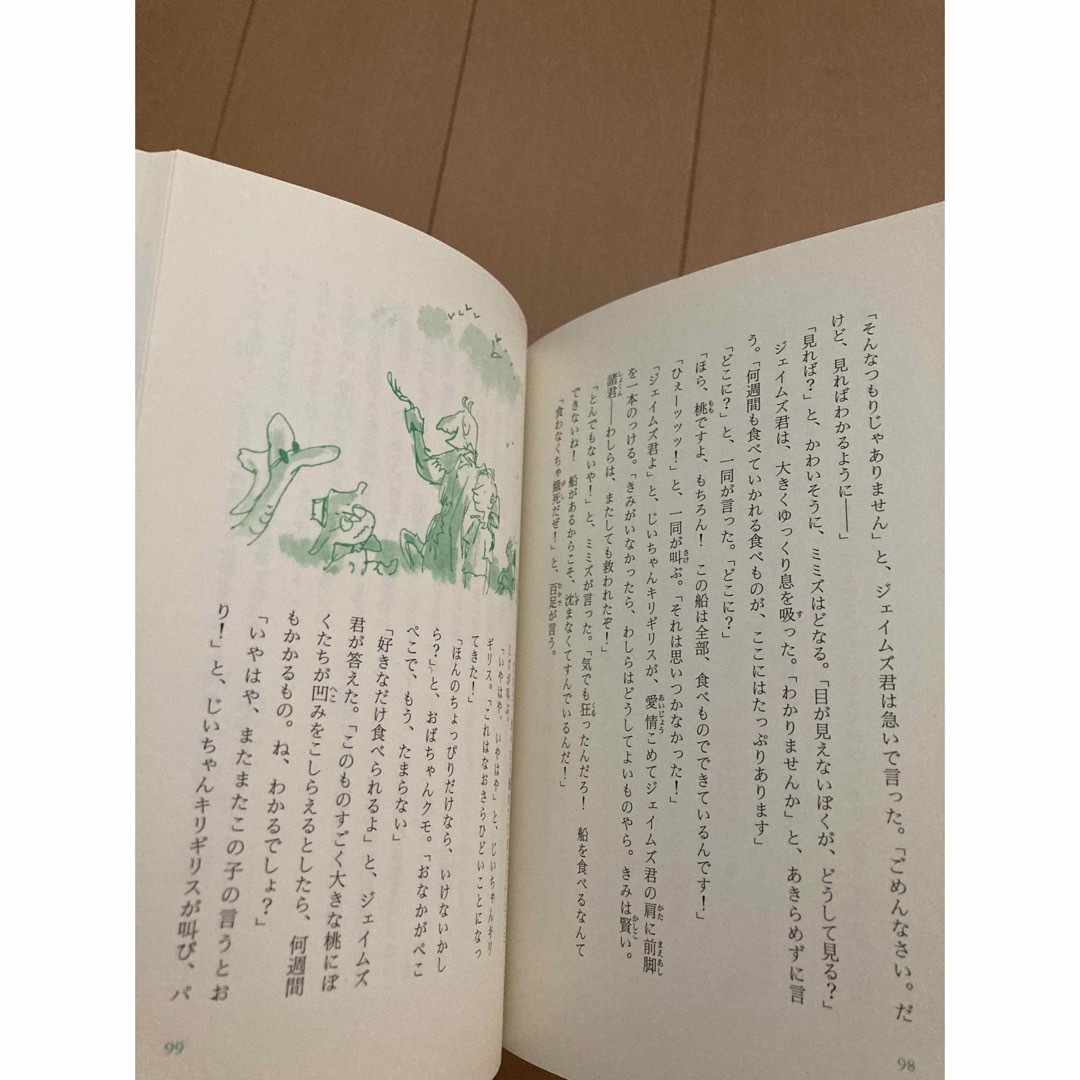 「そんなつもりじゃありません」と、ジェイムズ君は急いで言った。「ごめんなさい。だ
けど、見ればわかるように――」
「見れば？」と、かわいそうに、ミミズはどなる。「目が見えないぼくが、どうして見る？」
ジェイムズ君は、大きくゆっくり息を吸った。「わかりませんか」と、あきらめずに言
う。「何週間も食べていかれる食べものが、ここにはたっぷりあります」
「どこに？」と、一同が言った。「どこに？」
「ほら、桃ですよ、もちろん！　この船は全部、食べものでできているんです！」
「ひぇーッッッ！」と、一同が叫ぶ。「それは思いつかなかった！」
「ジェイムズ君よ」と、じいちゃんキリギリスが、愛情こめてジェイムズ君の肩に前脚
を一本のっける。「きみがいなかったら、わしらはどうしてよいものやら。きみは賢い。
諸君――わしらは、またしても救われたぞ！」
「とんでもないや！」と、ミミズが言った。「気でも狂ったんだろ！　船を食べるなんて
できないね！　船があるからこそ、沈まなくてすんでいるんだ！」
「食わなくちゃ餓死だぜ！」と、百足が言う。
98
「いやはや、いやはや」と、じいちゃんキリ
ギリス。「これはなおさらひどいことになっ
てきた！」
「ほんのちょっぴりだけなら、いけないかし
ら？」と、おばちゃんクモ。「おなかがぺこ
ぺこで、もう、たまらない」
「好きなだけ食べられるよ」と、ジェイムズ
君が答えた。「このものすごく大きな桃にぼ
くたちが凹みをこしらえるとしたら、何週間
もかかるもの。ね、わかるでしょ？」
「いやはや、またまたこの子の言うとお
り！」と、じいちゃんキリギリスが叫び、パ
99